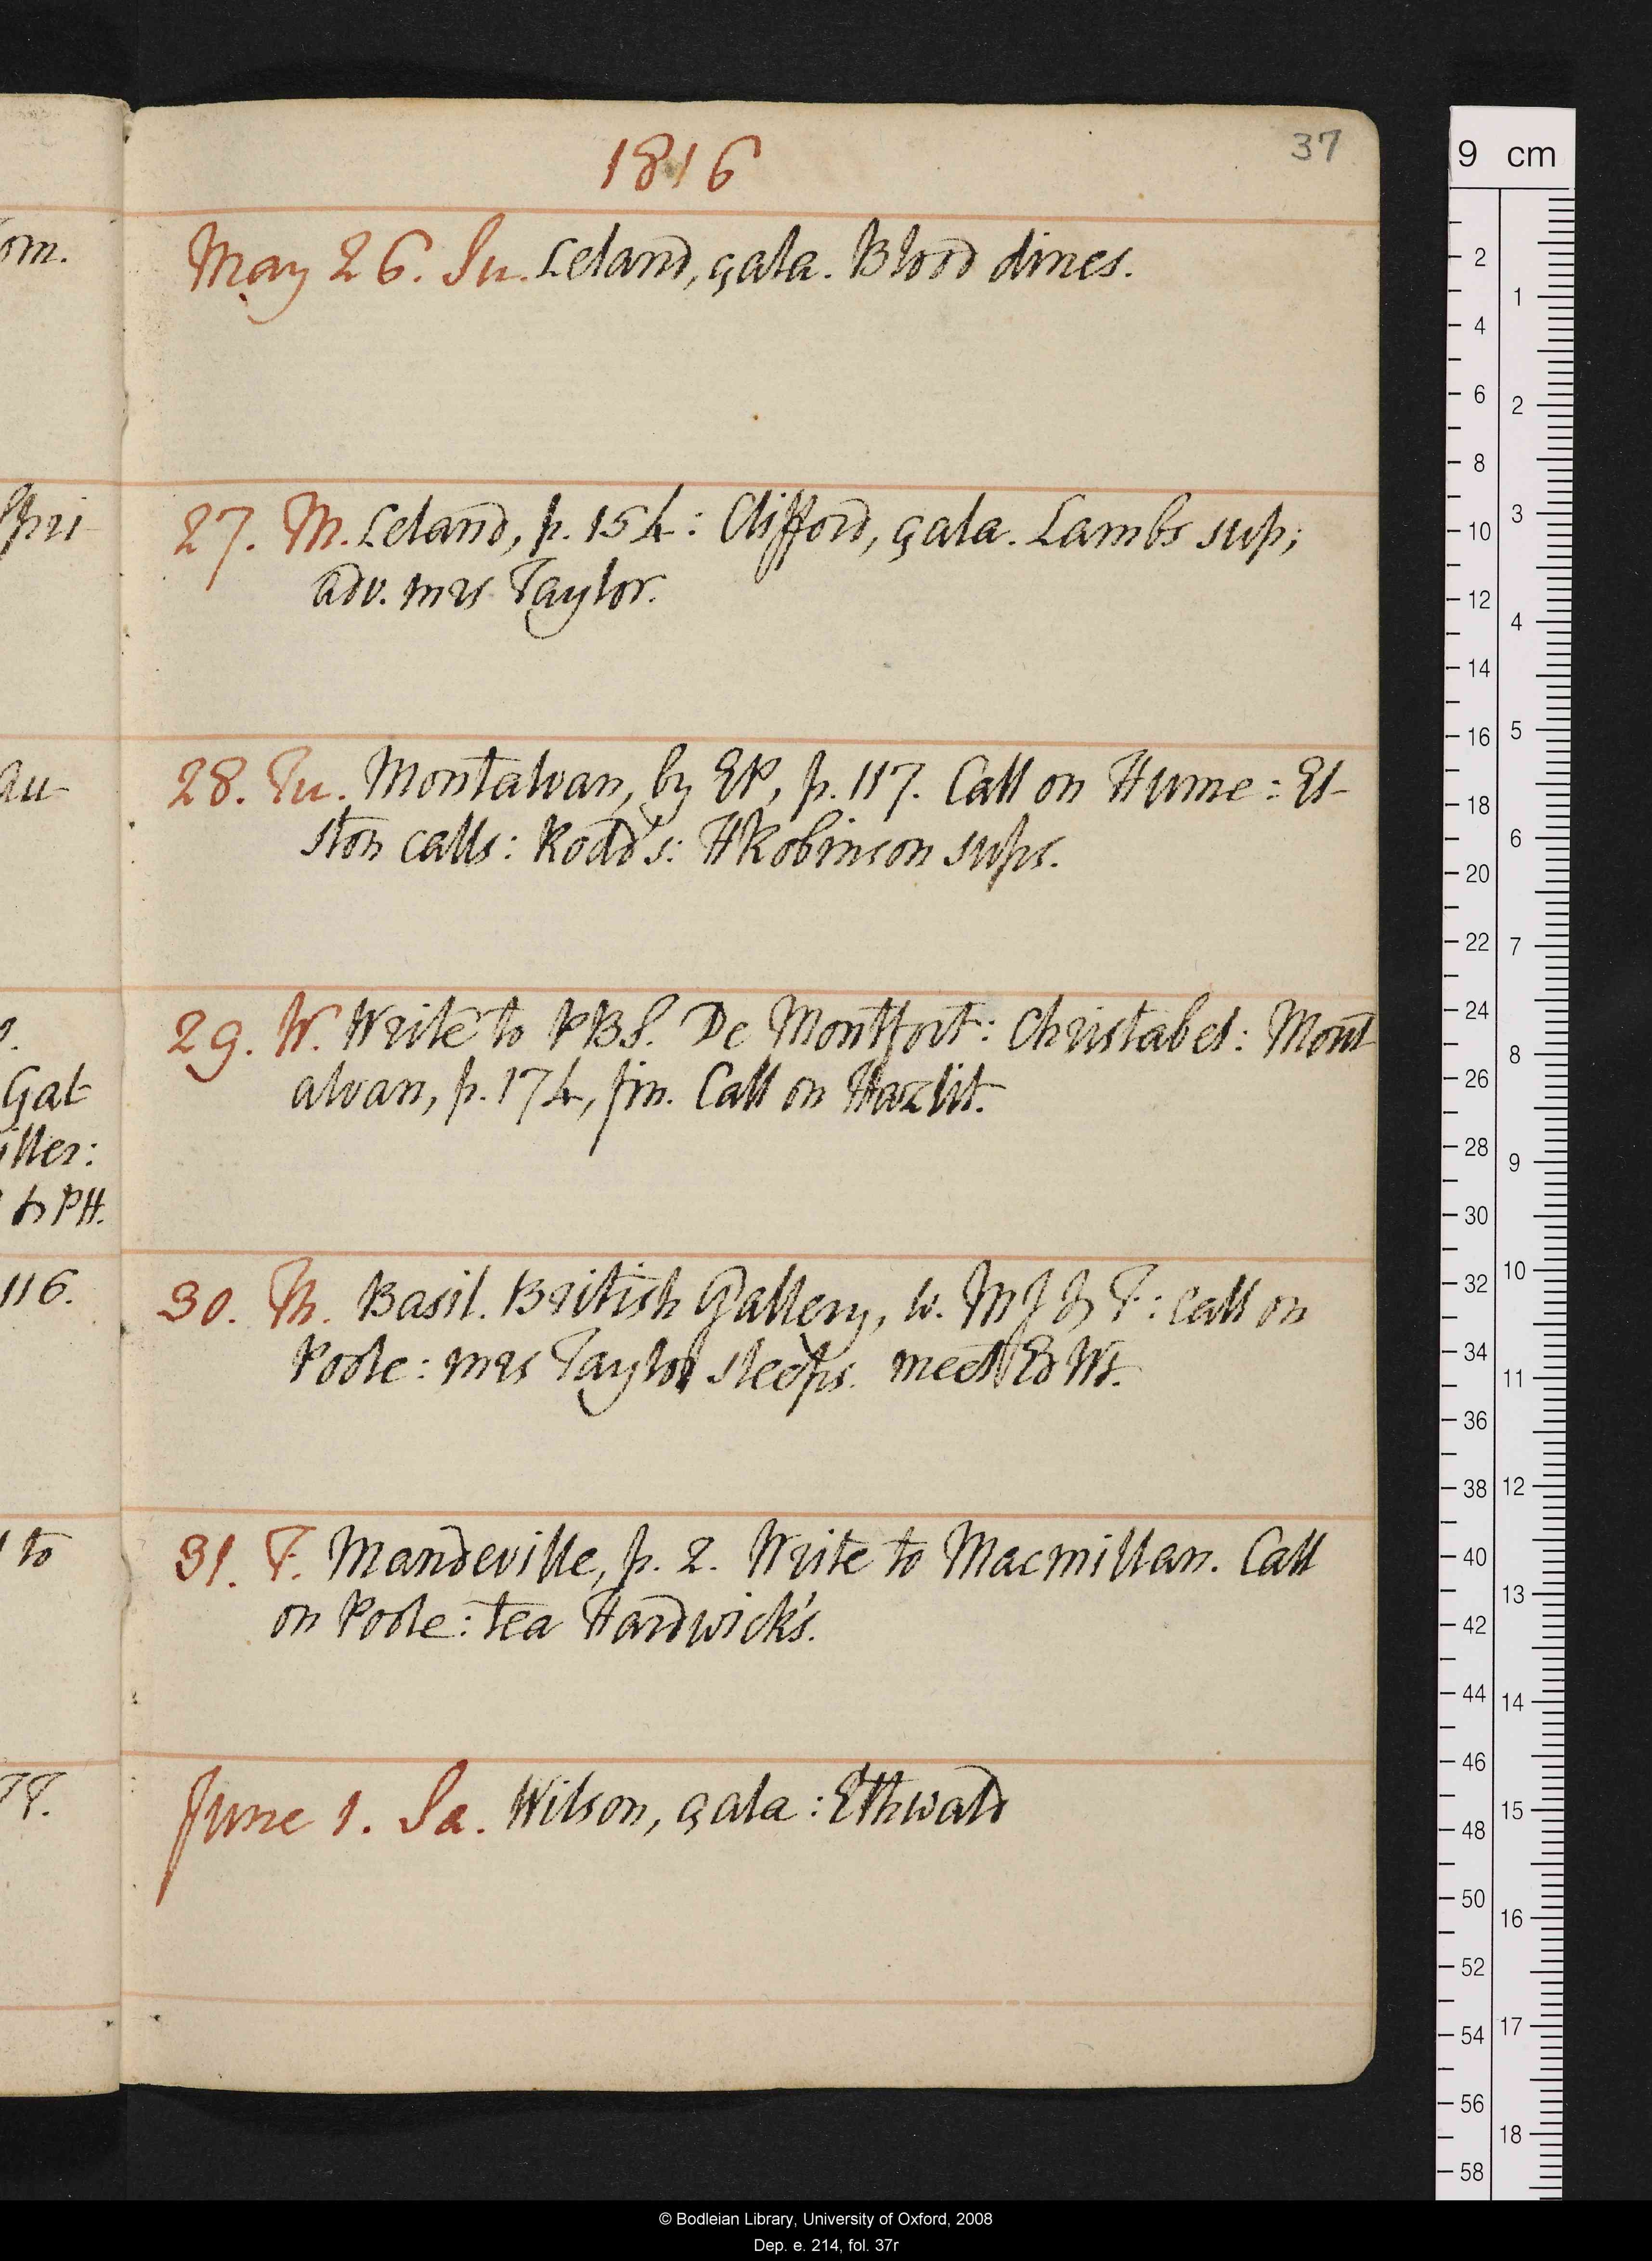 1816
37
May 26. Su. Leland, çala. Blood dines.
27. M. Leland, p. 154: Clifford, çala. Lambs sup;
adv. mrs Taylor.
28. Tu. Montalvan, by EP, p. 117. Call on Hume: El-
ston calls: Rodd's: HRobinson sups.
29. W. Write to PBS. De Montfort: Christabel: Mont
alvan, p. 174, fin. Call on Hazlit.
30. Th. Basil. British Gallery, w. MJ & T: call on
Poole: mrs Taylor sleeps. meet Ed Wt.
31. F. Mandeville, p. 2. Write to Macmillan. Call
on Poole: tea Hardwick's.
June 1. Sa. Wilson, çala: Ethwald
om.
au
Gal
iller:
& PH.
116.
to
9 cm
2
4
6
8
10
12
14
16
18
20
22
24
26
28
30
32
34
36
38
40
42
44
46
48
50
52
54
56
58
1
2
3
4
5
6
7
8
9
10
11
12
13
14
15
16
17
18
© Bodleian Library, University of Oxford, 2008
Dep. e. 214, fol. 37r